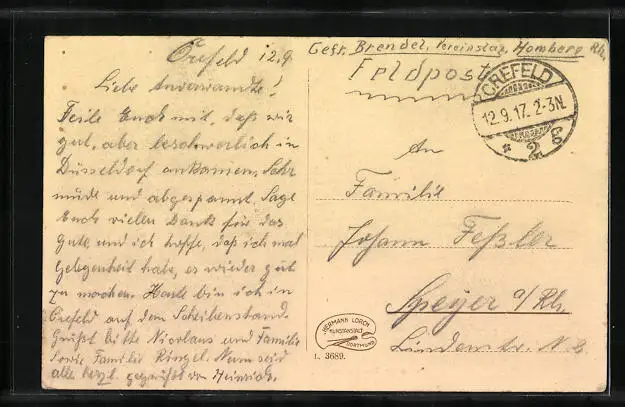 Crefeld 12.9.
Liebe Anverwandte!
Teile Euch mit, daß wir
gut, aber beschwerlich in
Düsseldorf ankamen, Sehr
müde und abgespannt. Sage
Euch vielen Dank für das
gute, und ich hoffe, daß ich mal
Gelegenheit habe, es wieder gut
zu machen. Heute bin ich in
Crefeld auf dem Scheibenstand.
Grüßt bitte Nicolaus und Familie
sowie Familie Ringel. Nun seid
alle herzl. gegrüßt von Heinrich.
Gefr. Brendel, Vereinslaz. Homberg Rh.
Feldpost
CREFELD
12.9.17. 2-3N.
* 2
An
Familie
Johann Feßler
Speyer a/Rh.
Lindenstr. N.
HERMANN LORCH
KUNSTANSTALT
DORTMUND
L. 3689.